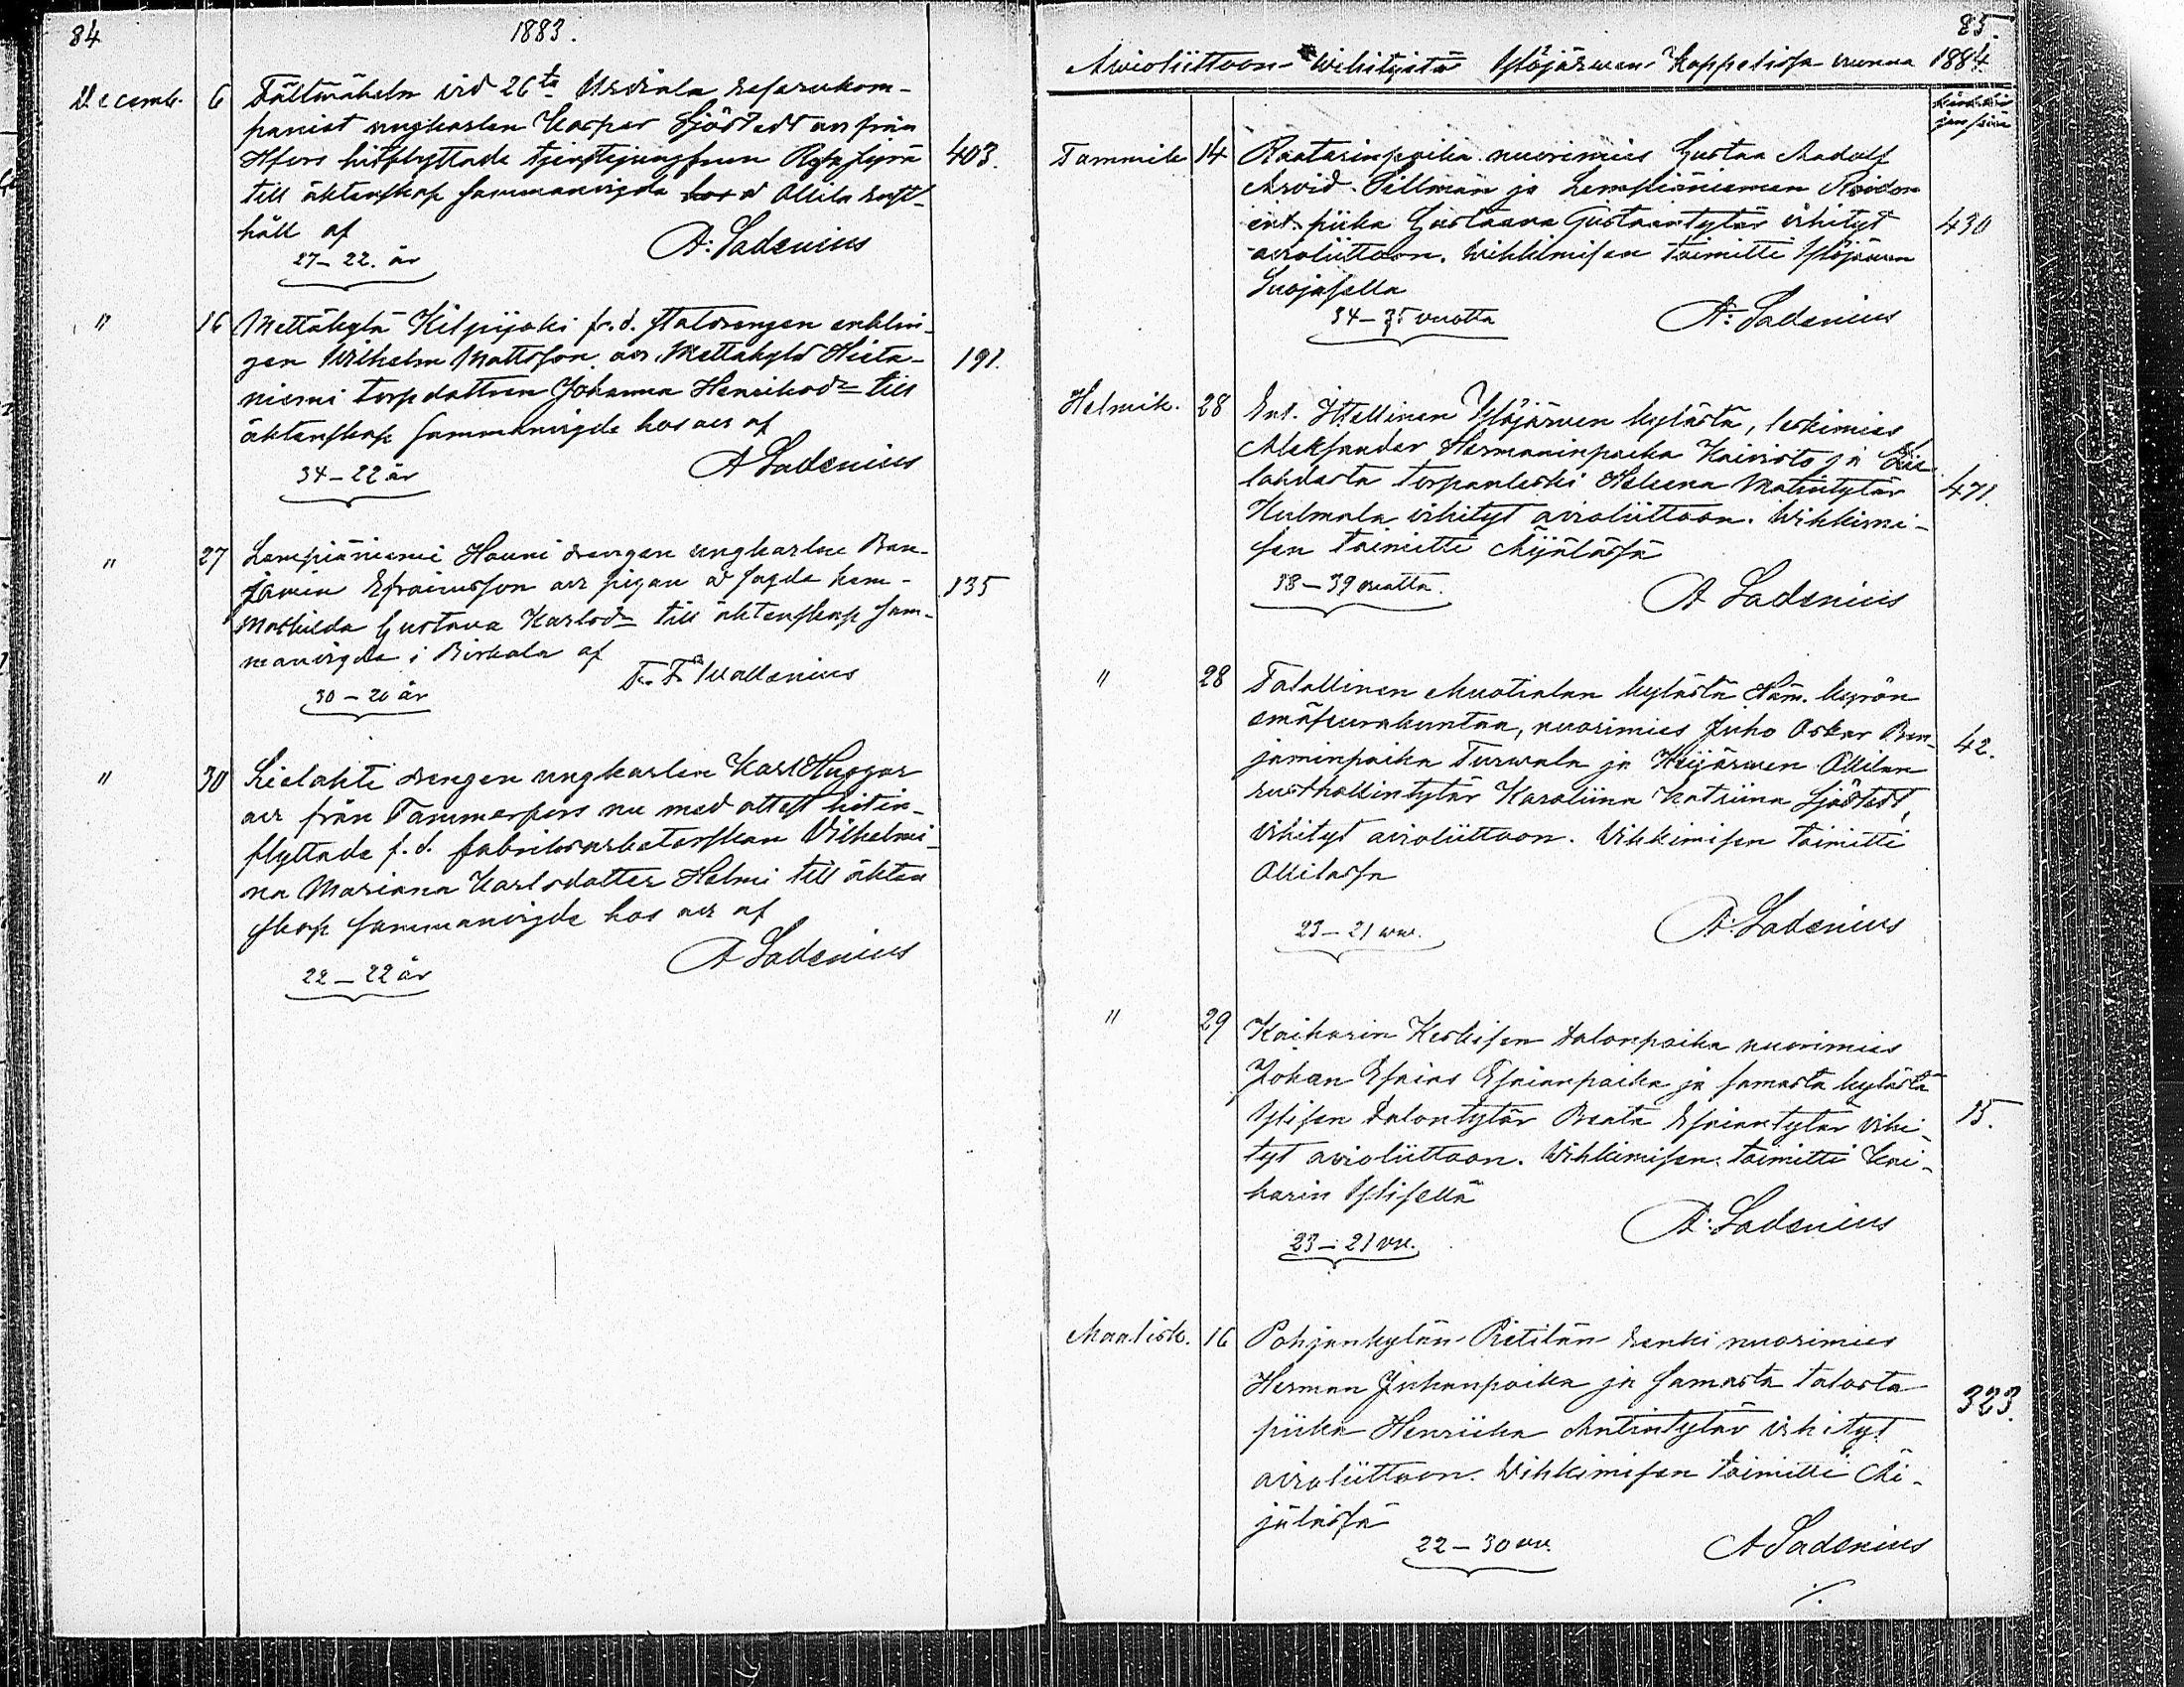 84
1883.
Decemb. 6 Fältwäbeln vid 26te Urdiala reservkom-
paniet ungkarlen Kasper Sjöstedt av från
Hfors hitflyttade tjenstejungfrun
403.
till äktenskap sammanvigda å Ollila rust-
håll af
27-22. år
A: Ladenius
" 16 Mettäkylä Kilpijoki fr. d. Staldrengen enklin-
gen Wilhelm Mattsson av Mettäkylä Hieta-
191.
niemi torpdottren Johanna Henriksdr till
äktenskap sammanvigde hos av af
34-22 år
A Ladenius
" 27 Lempiäniemi Hauni drengen ungkarlen Ben-
jamin Efraimsson av pigan å sagde hem-
135
Mathilda Gustava Karlsdr till äktenskap sam-
manvigda i Birkala af
F. F. Wallenius
30-20 år
" 30 Lielahti drengen ungkarlen Karl Huggar
av från Tammerfors nu med attest hitin-
flyttade f.d. fabriksarbeterskan Vilhelmi-
na Mariana Karlsdotter Helmi till äkten
skap sammanvigde hos av af
A Ladenius
22-22 år
85.
Avioliittoon Wihityitä Ylöjärwen Kappelissa vuonna 1884.
Tammik 14 Raatarinpoika nuorimies Gustaa Aadolf
Arvid Sillman ja Lempiäniemen
ent. piika Gustaava Gustaantytär vihityt
430
avioliittoon. Wihkimisen toimitti Ylöjärven
Suojasella
34-35 vuotta
A: Ladenius
Helmik. 28 Ent. Itsellinen Ylöjärven kylästä, leskimies
Aleksander Hermaninpoika Koivisto ja Lie
lahdesta torpanleski Heleena Matintytär
471.
Hulmala vihityt avioliittoon. Wihkimi-
sen toimitti Äijälässä
38-39 vuotta.
A Ladenius
" 28 Talollinen Muotialan kylästä Häm. kyrön
emäseurakuntaa, nuorimies Juho Oskar Ben-
42.
jaminpoika Turwala ja Keijärven Ollilan
rusthollintytär Karoliina Katriina Sjöstedt,
vihityt avioliittoon. Vihkimisen toimitti
Ollilassa
23-21 vuo.
A. Ladenius
" 29 Kaiharin Keskisen talonpoika nuorimies
Johan Esaias Esaianpoika ja samasta kylästä
Ylisen talontytär Beata Esaiantytär vihi-
15.
tyt avioliittoon. Wihkimisen toimitti Kai-
harin Ylisellä
23-21 vv.
A: Ladenius
Maalisk. 16 Pohjankylän Pietilän renki nuorimies
Herman Juhanpoika ja samasta talosta
323.
piika Henriika Antintytär vihityt
avioliittoon. Wihkimisen toimitti Äi-
jälässä
22-30 vv.
A Ladenius